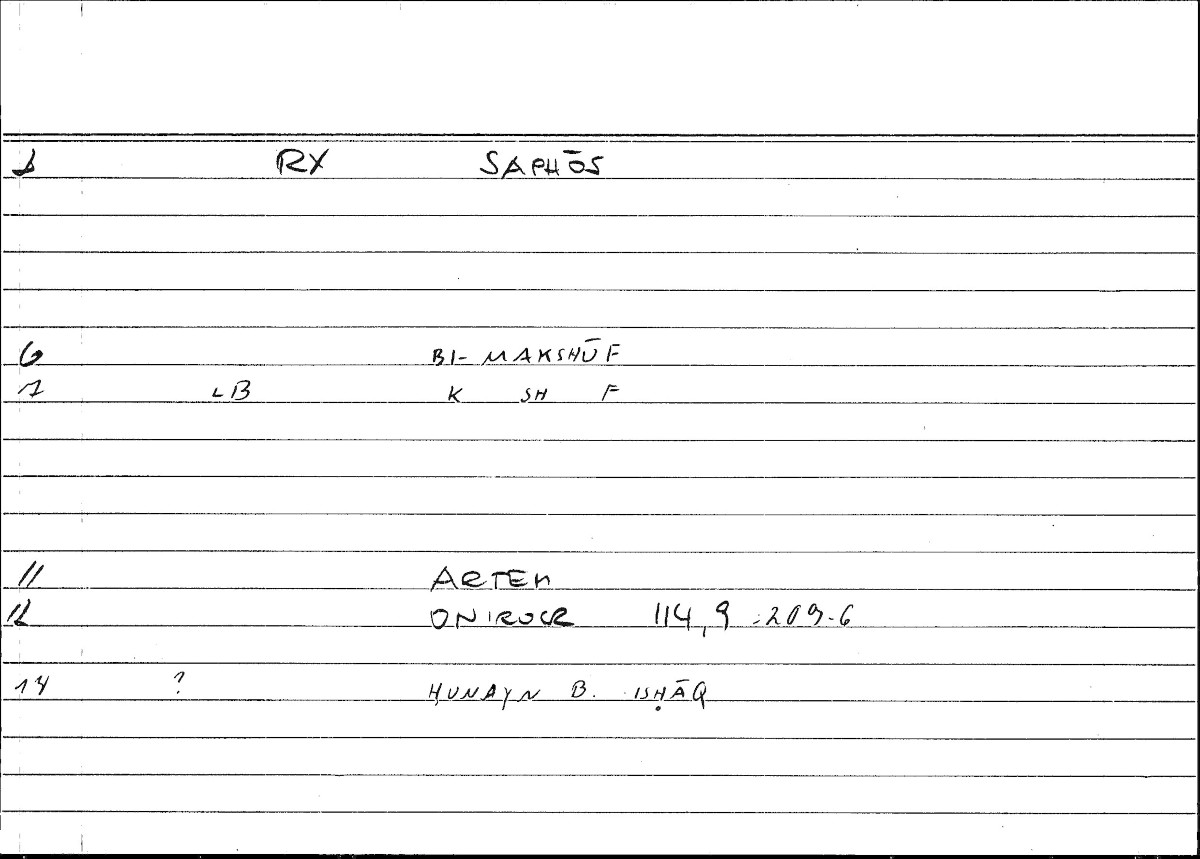 1 RX SAPHŌS
6 BI- MAKSHŪF
7 LB K SH F
11 ARTEM
12 ONIROCR 114,9 = 209.6
14 ? ḤUNAYN B. ISḤĀQ